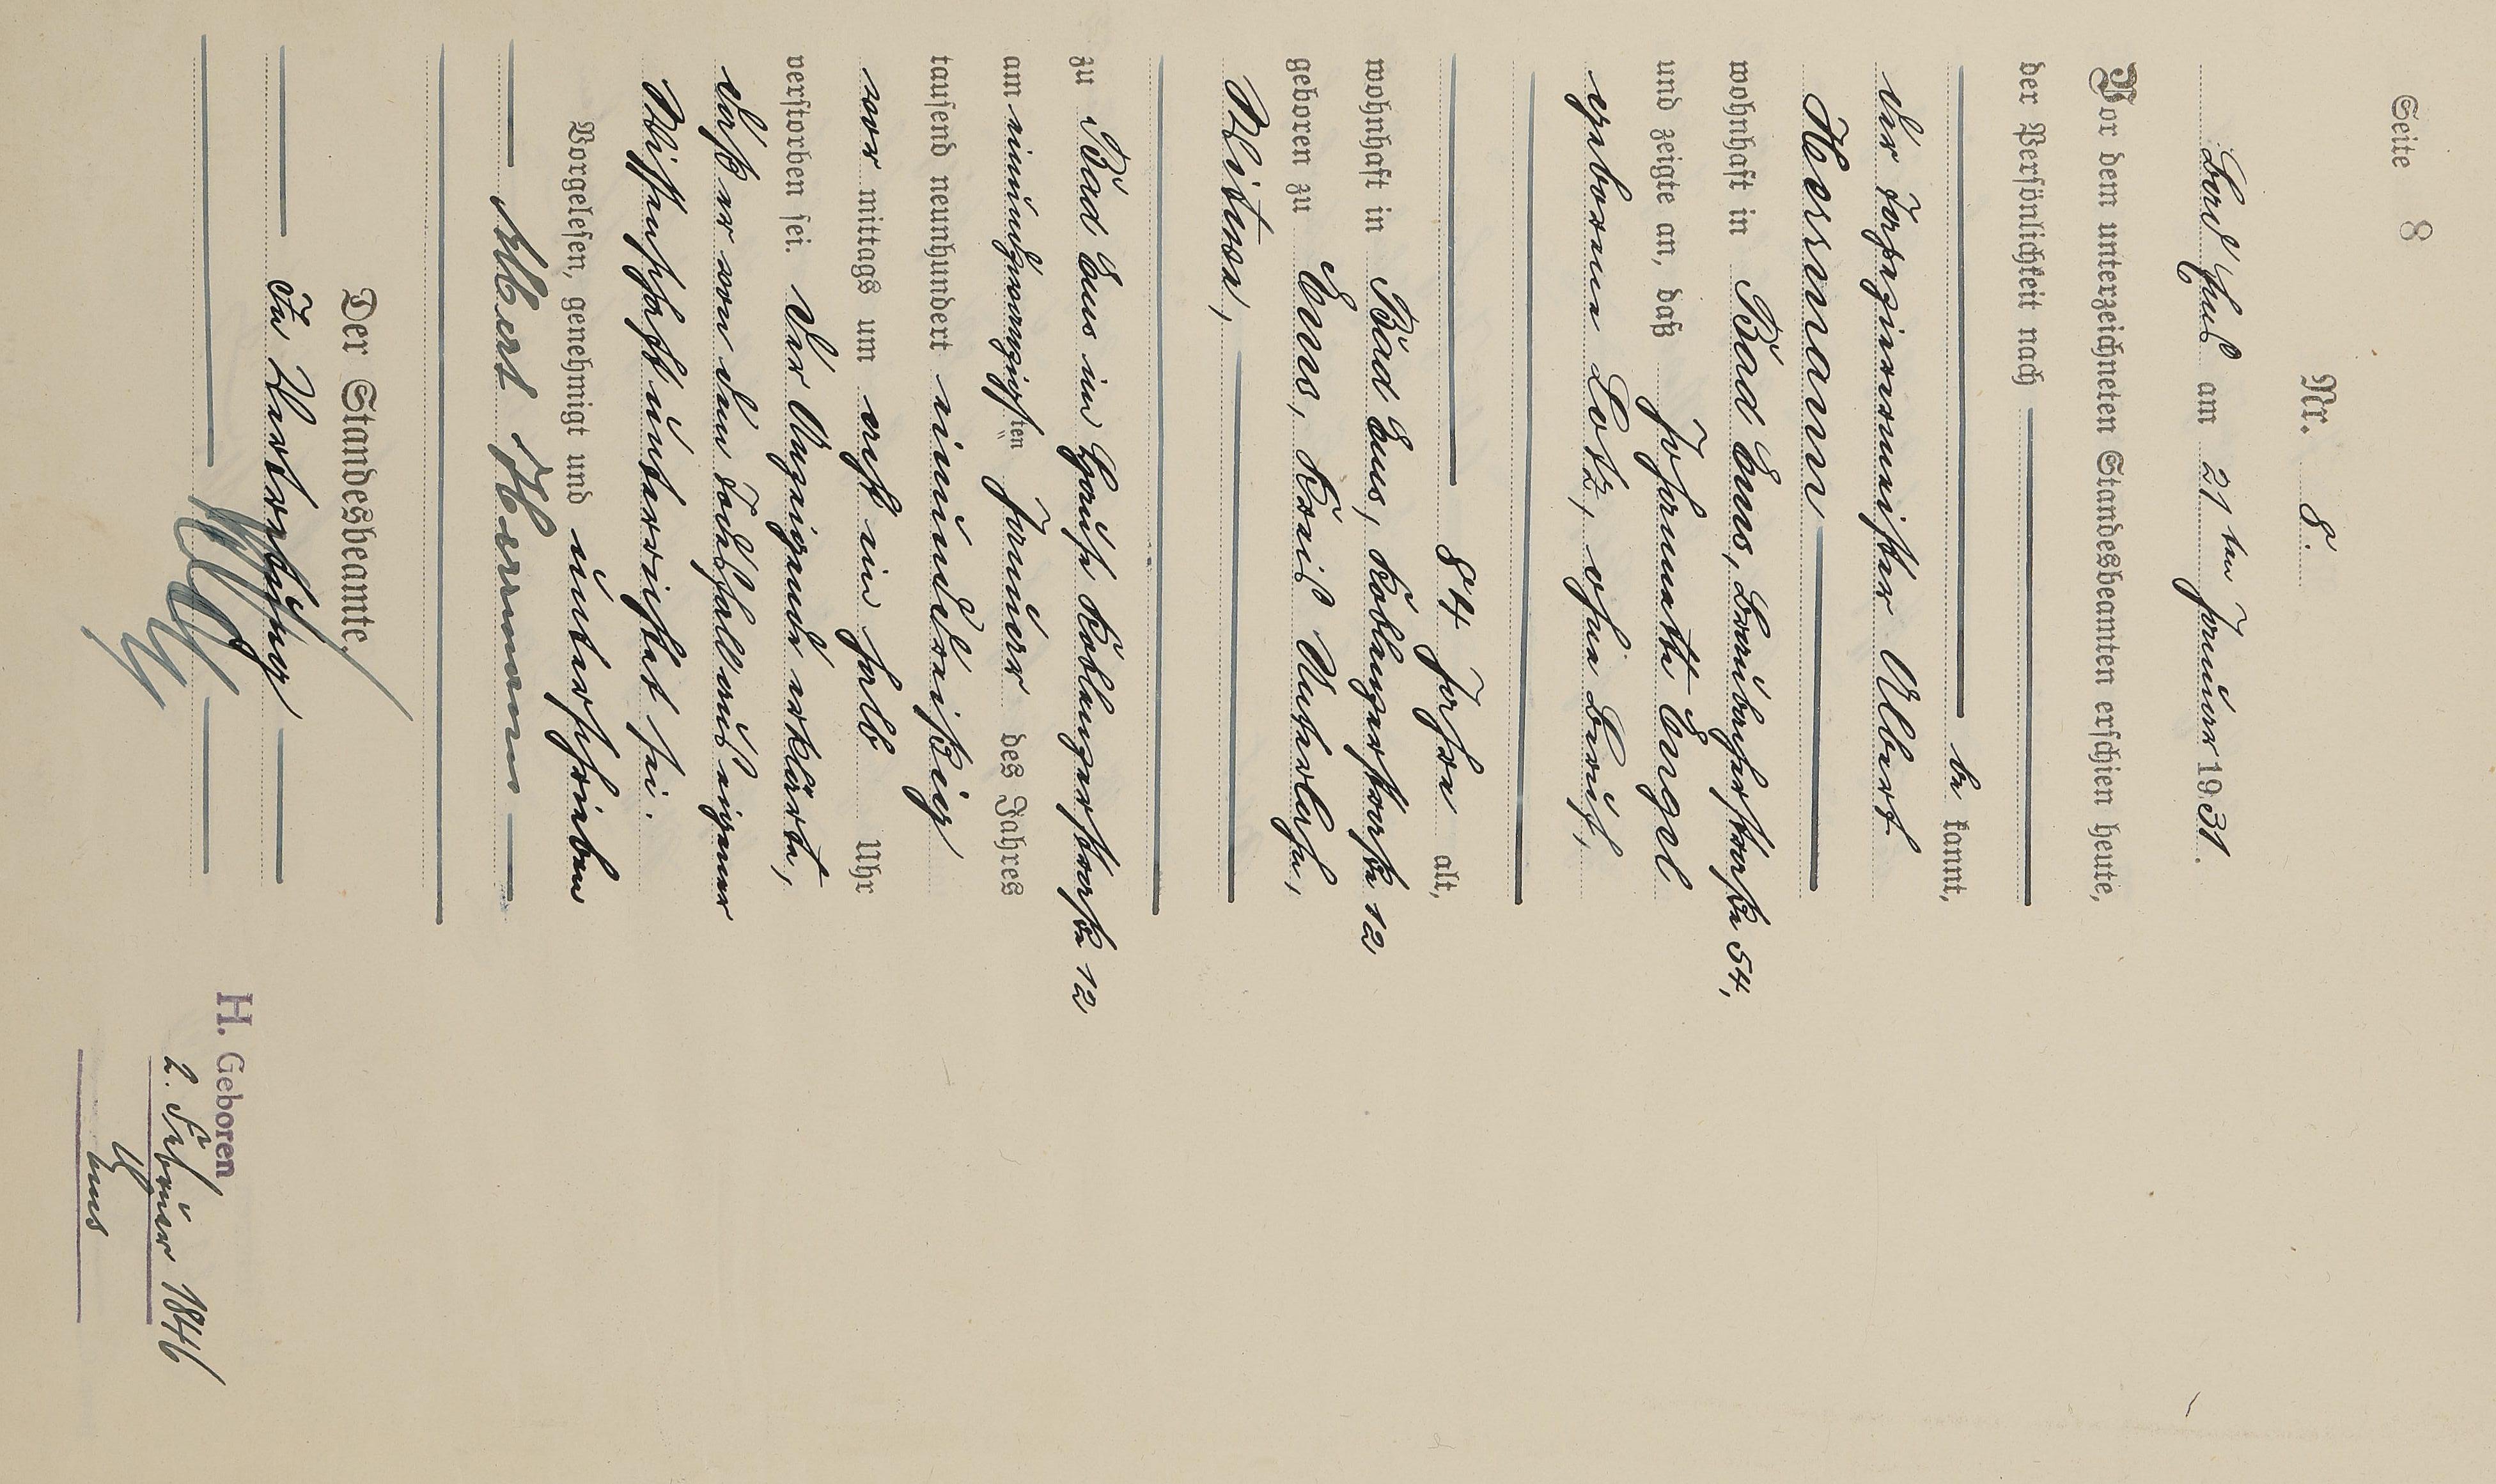 Seite 8
Nr. 8.
Bad Ems am 21 ten Januar 1931.
Vor dem unterzeichneten Standesbeamten erschien heute,
der Persönlichkeit nach
be kannt,
der Tapezierermeister Albert
Hermann
wohnhaft in Bad Ems, Braubacherstraße 54,
und zeigte an, daß Jeannette Engel
geborene Lotz, ohne Beruf,
84 Jahre alt,
wohnhaft in Bad Ems, Koblenzerstraße 12,
geboren zu Ems, Kreis Unterlahn,
Witwe,
zu Bad Ems im Hause Koblenzerstraße 12
am einundzwanzigsten Januar des Jahres
tausend neunhundert einunddreißig
vor mittags um acht ein halb Uhr
verstorben sei. Der Anzeigende erklärte,
daß er von dem Todesfall aus eigener
Wissenschaft unterrichtet sei.
Vorgelesen, genehmigt und unterschrieben
Albert Hermann
Der Standesbeamte.
In Vertretung
H. Geboren
2. Februar 1846
Ems